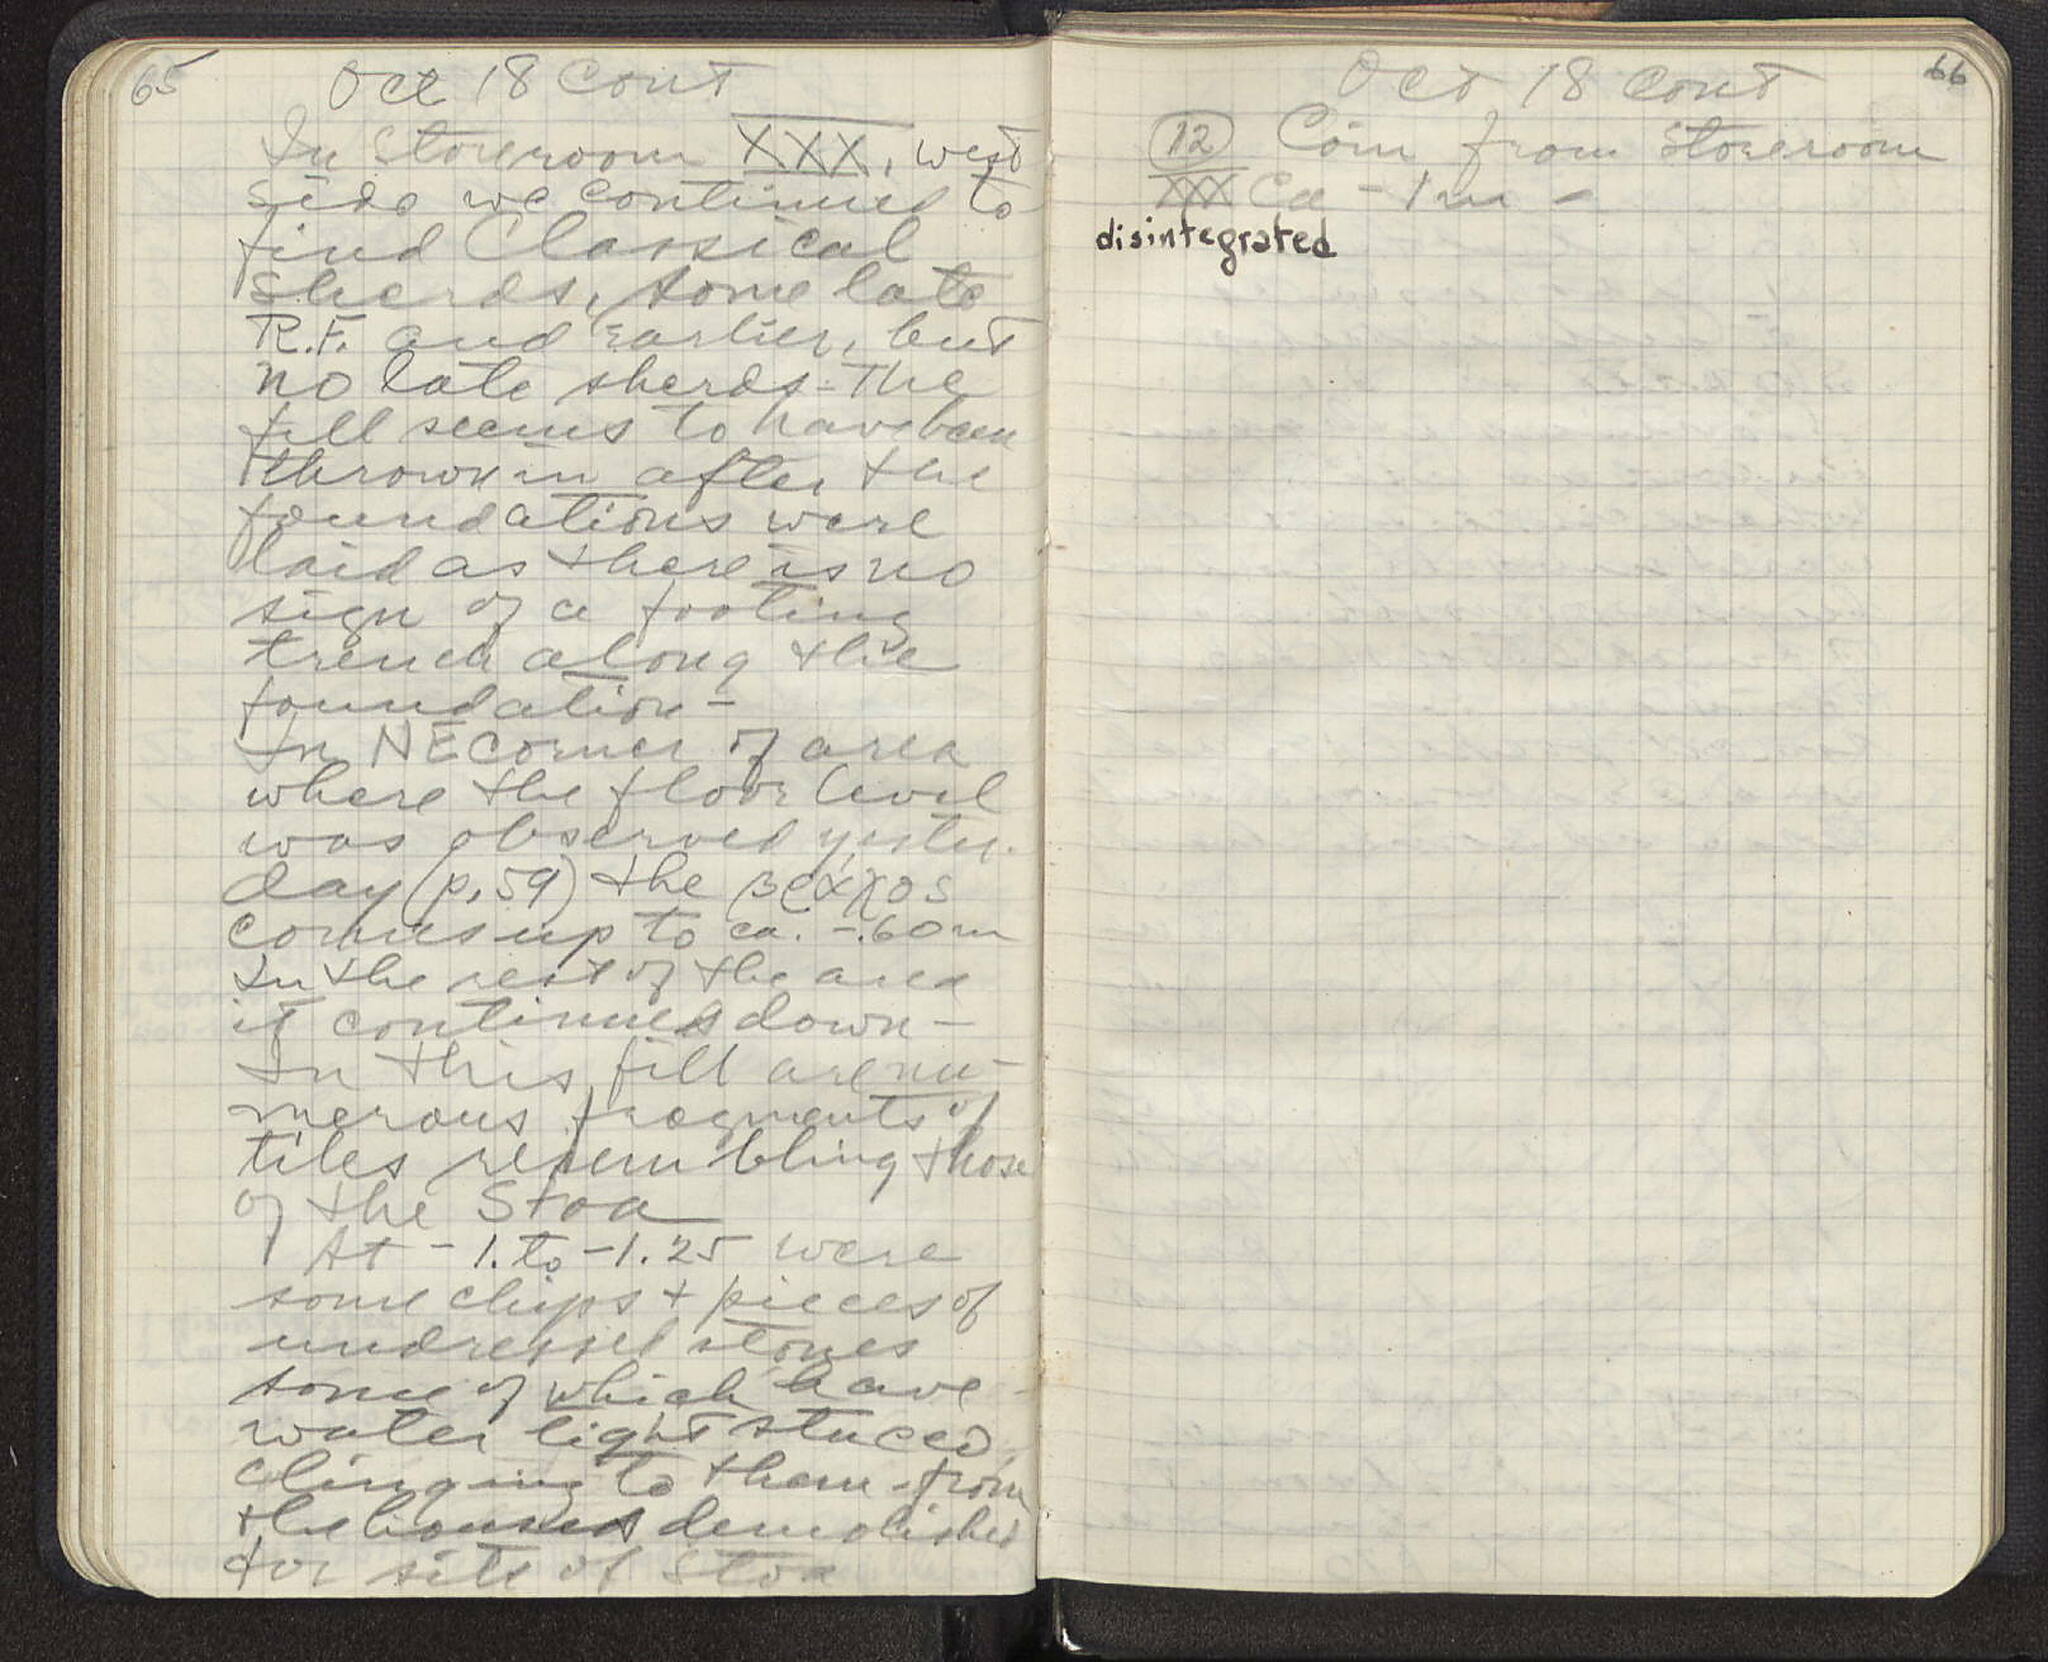 65
Oct 18 cont
In Storeroom XXX, west
side we continued to
find Classical
sherds, some late
R.F. and earlier, but
no late sherds - The
fill seems to have been
thrown in after the
foundations were
laid as there is no
sign of a footing
trench along the
foundation -
In NE corner of area
where the floor level
was observed yester-
day (p. 59) the
comes up to ca. -.60m
In the rest of the area
it continues down -
In this fill are nu-
merous fragments of
tiles resembling those
of the Stoa
At -1. to -1.25 were
some chips + pieces of
undressed stones
some of which have
water tight stucco
clinging to them - from
the houses demolished
for site of Stoa
66
Oct 18 cont
12 Coin from Storeroom
XXX Ca - 1m -
disintegrated